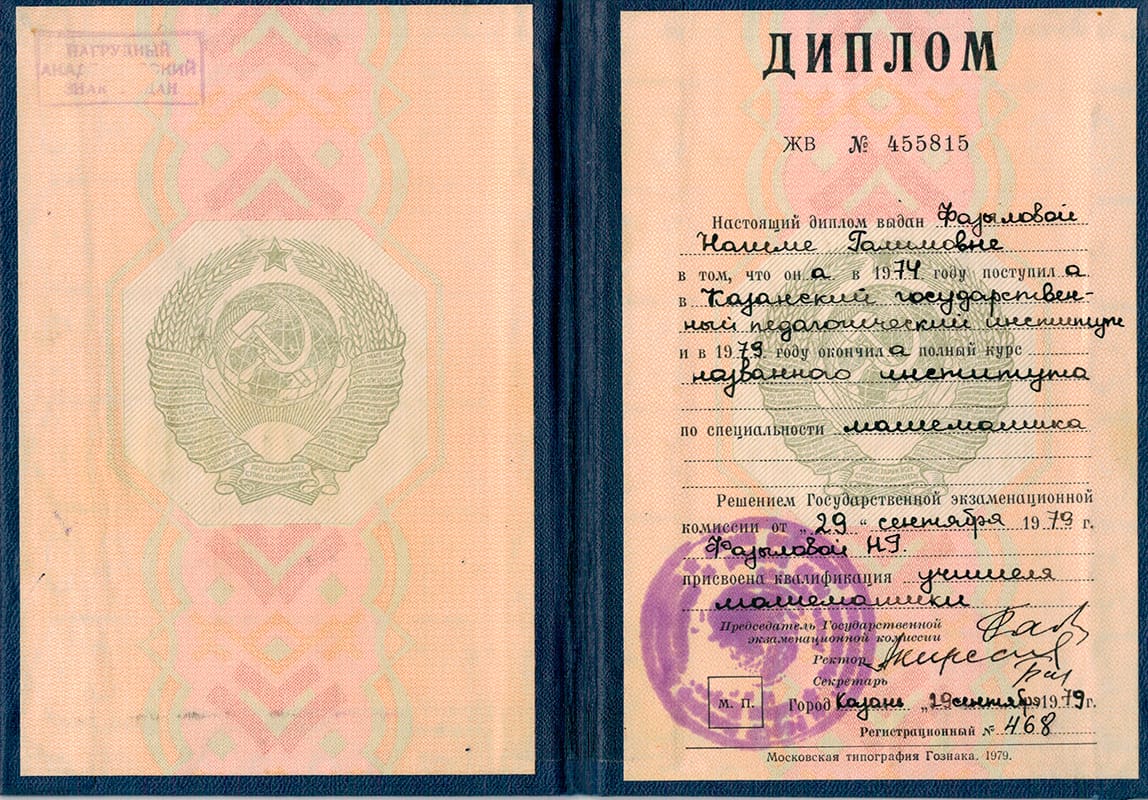 НАГРУДНЫЙ
ЗНАК
ПРОЛЕТАРИИ ВСЕХ
СТРАН, СОЕДИНЯЙТЕСЬ!
ДИПЛОМ
ЖВ № 455815
Настоящий диплом выдан Фазыловой
Наиме Галимовне
в том, что он а в 1974 году поступил а
в Казанский государствен-
ный педагогический институт
и в 1979 году окончил а полный курс
названного института
по специальности математика
Решением Государственной экзаменационной
комиссии от „29“ сентября 1979 г.
Фазыловой Н.Г.
присвоена квалификация учителя
математики
Председатель Государственной
экзаменационной комиссии
Ректор
Секретарь
М. П.
Город Казань „29 сентября 1979 г.
Регистрационный № 468
Московская типография Гознака. 1979.